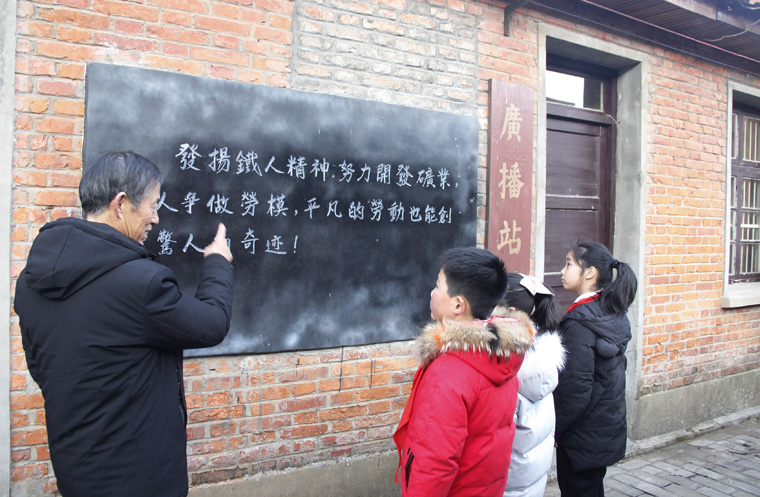 發揚鐵人精神,努力開發礦業,
人爭做勞模,平凡的勞動也能創
驚人 奇迹!
廣播站